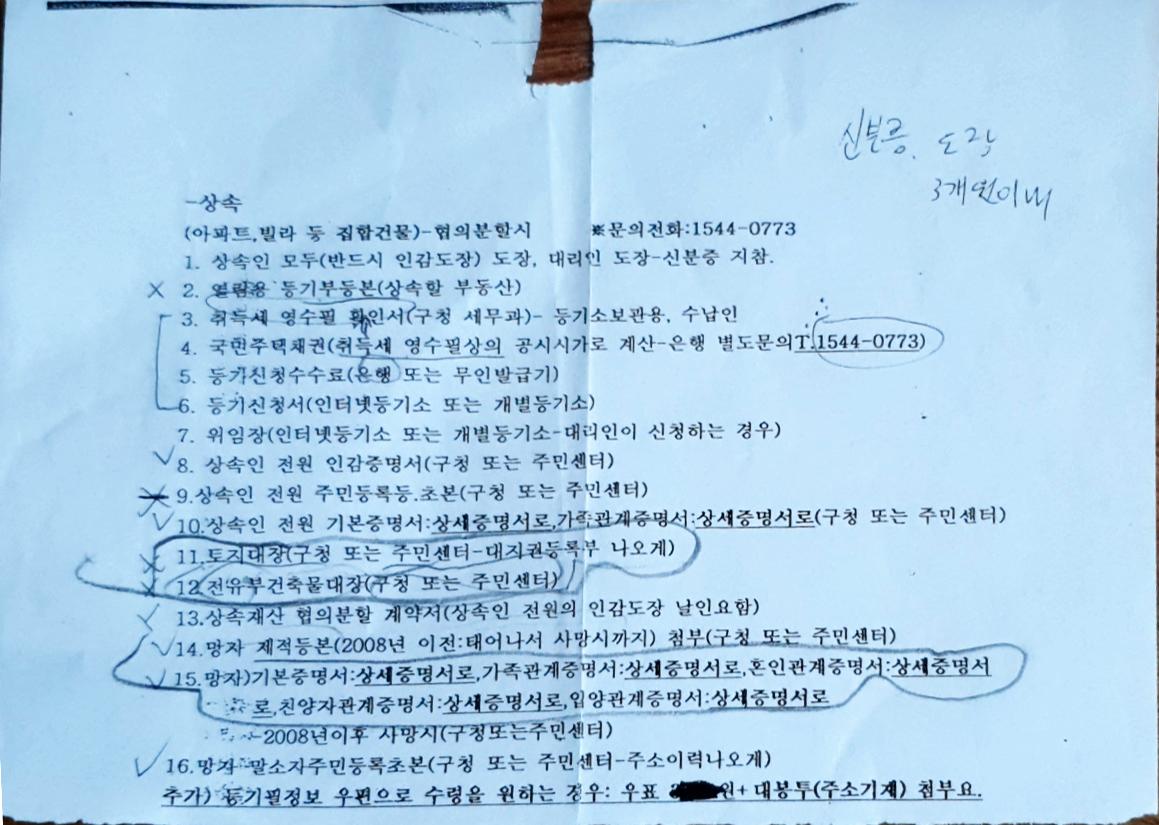 신분증, 도장
3개월이내
-상속
(아파트,빌라 등 집합건물)-협의분할시 ※문의전화:1544-0773
1. 상속인 모두(반드시 인감도장) 도장, 대리인 도장-신분증 지참.
2. 열람용 등기부등본(상속할 부동산)
3. 취득세 영수필 확인서(구청 세무과)- 등기소보관용, 수납인
4. 국민주택채권(취득세 영수필상의 공시시가로 계산-은행 별도문의T.1544-0773)
5. 등기신청수수료(은행 또는 무인발급기)
6. 등기신청서(인터넷등기소 또는 개별등기소)
7. 위임장(인터넷등기소 또는 개별등기소-대리인이 신청하는 경우)
8. 상속인 전원 인감증명서(구청 또는 주민센터)
9.상속인 전원 주민등록등.초본(구청 또는 주민센터)
10.상속인 전원 기본증명서:상세증명서로,가족관계증명서:상세증명서로(구청 또는 주민센터)
11.토지대장(구청 또는 주민센터-대지권등록부 나오게)
12.전유부건축물대장(구청 또는 주민센터)
13.상속재산 협의분할 계약서(상속인 전원의 인감도장 날인요함)
14.망자 제적등본(2008년 이전:태어나서 사망시까지) 첨부(구청 또는 주민센터)
15.망자)기본증명서:상세증명서로,가족관계증명서:상세증명서로,혼인관계증명서:상세증명서
로,친양자관계증명서:상세증명서로,입양관계증명서:상세증명서로
-2008년이후 사망시(구청또는주민센터)
16.망자 말소자주민등록초본(구청 또는 주민센터-주소이력나오게)
추가) 등기필정보 우편으로 수령을 원하는 경우: 우표 원+ 대봉투(주소기재) 첨부요.